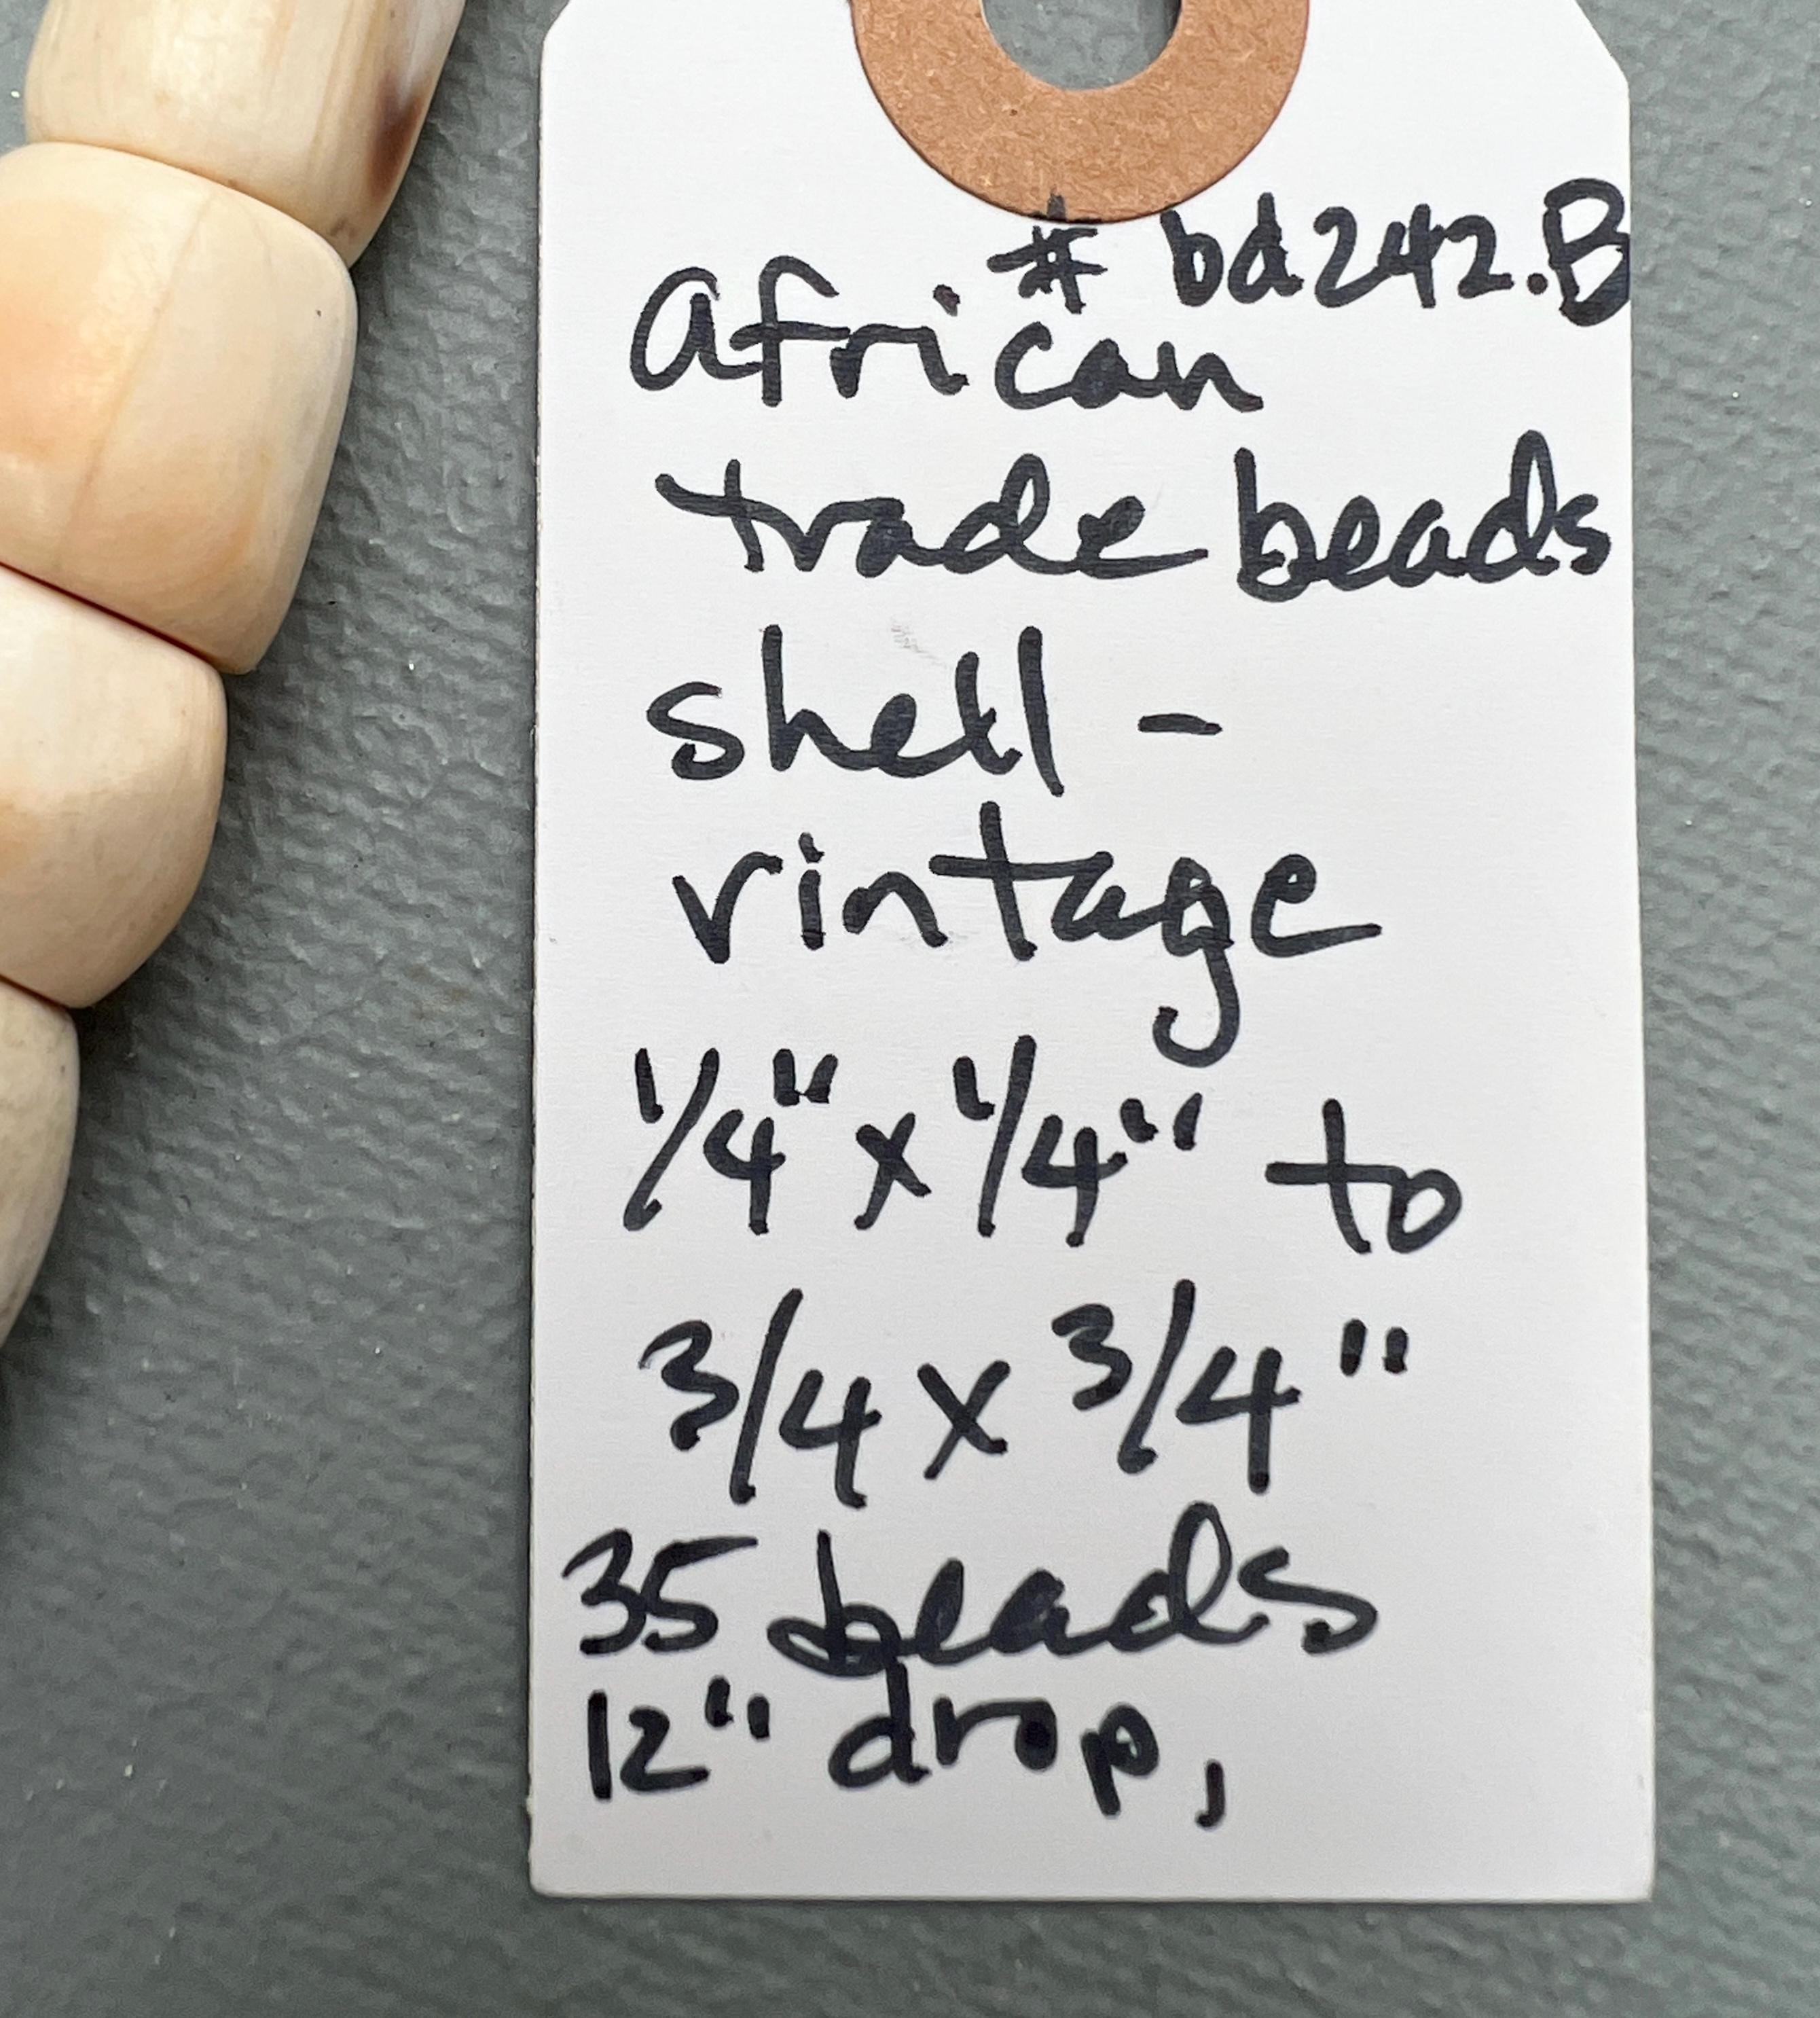 # bd242.B
African
trade beads
shell -
vintage
1/4" x 1/4" to
3/4 x 3/4"
35 beads
12" drop,